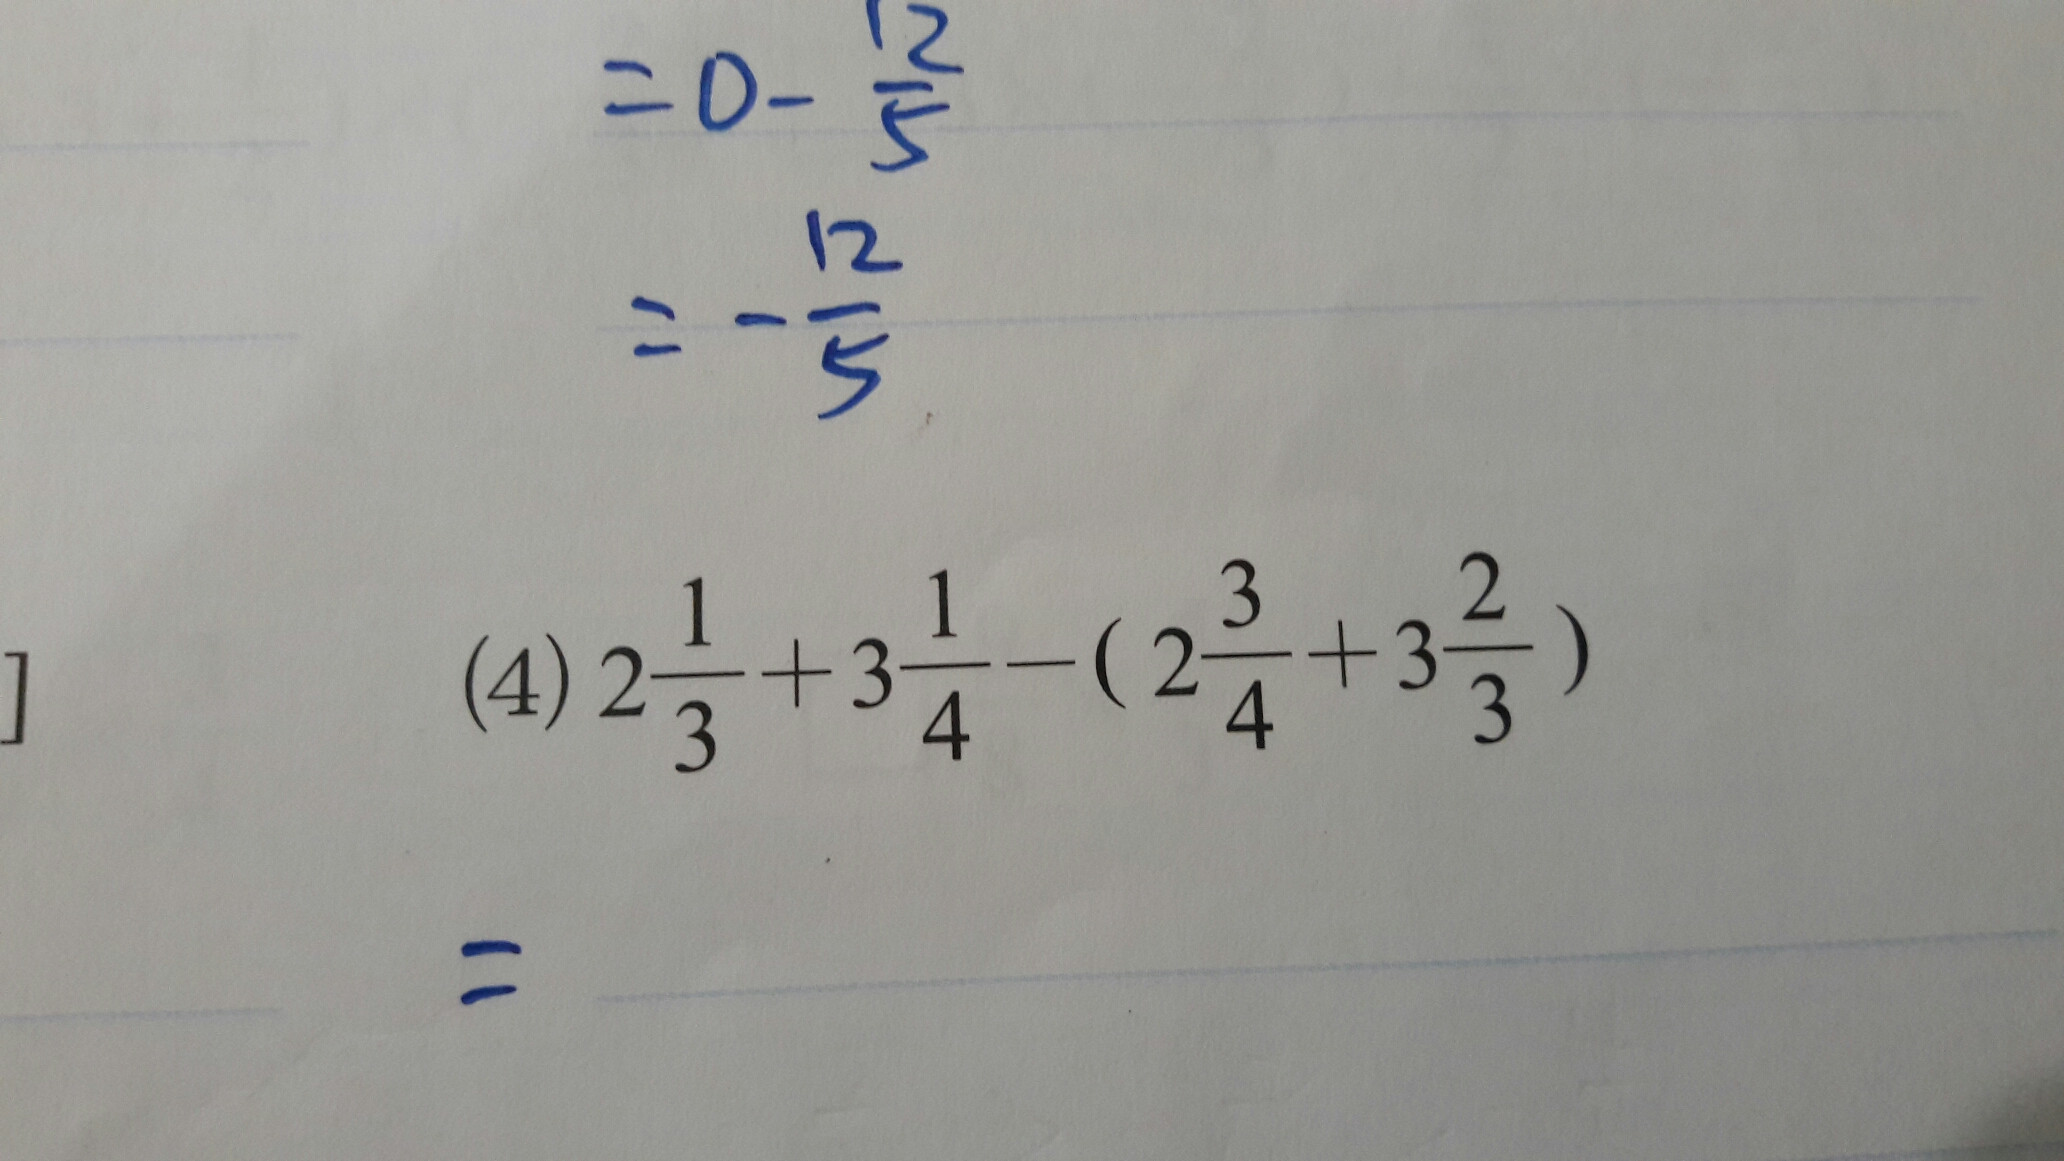 =0-12/5
=-12/5
] (4) 2 1/3+3 1/4-(2 3/4+3 2/3)
=